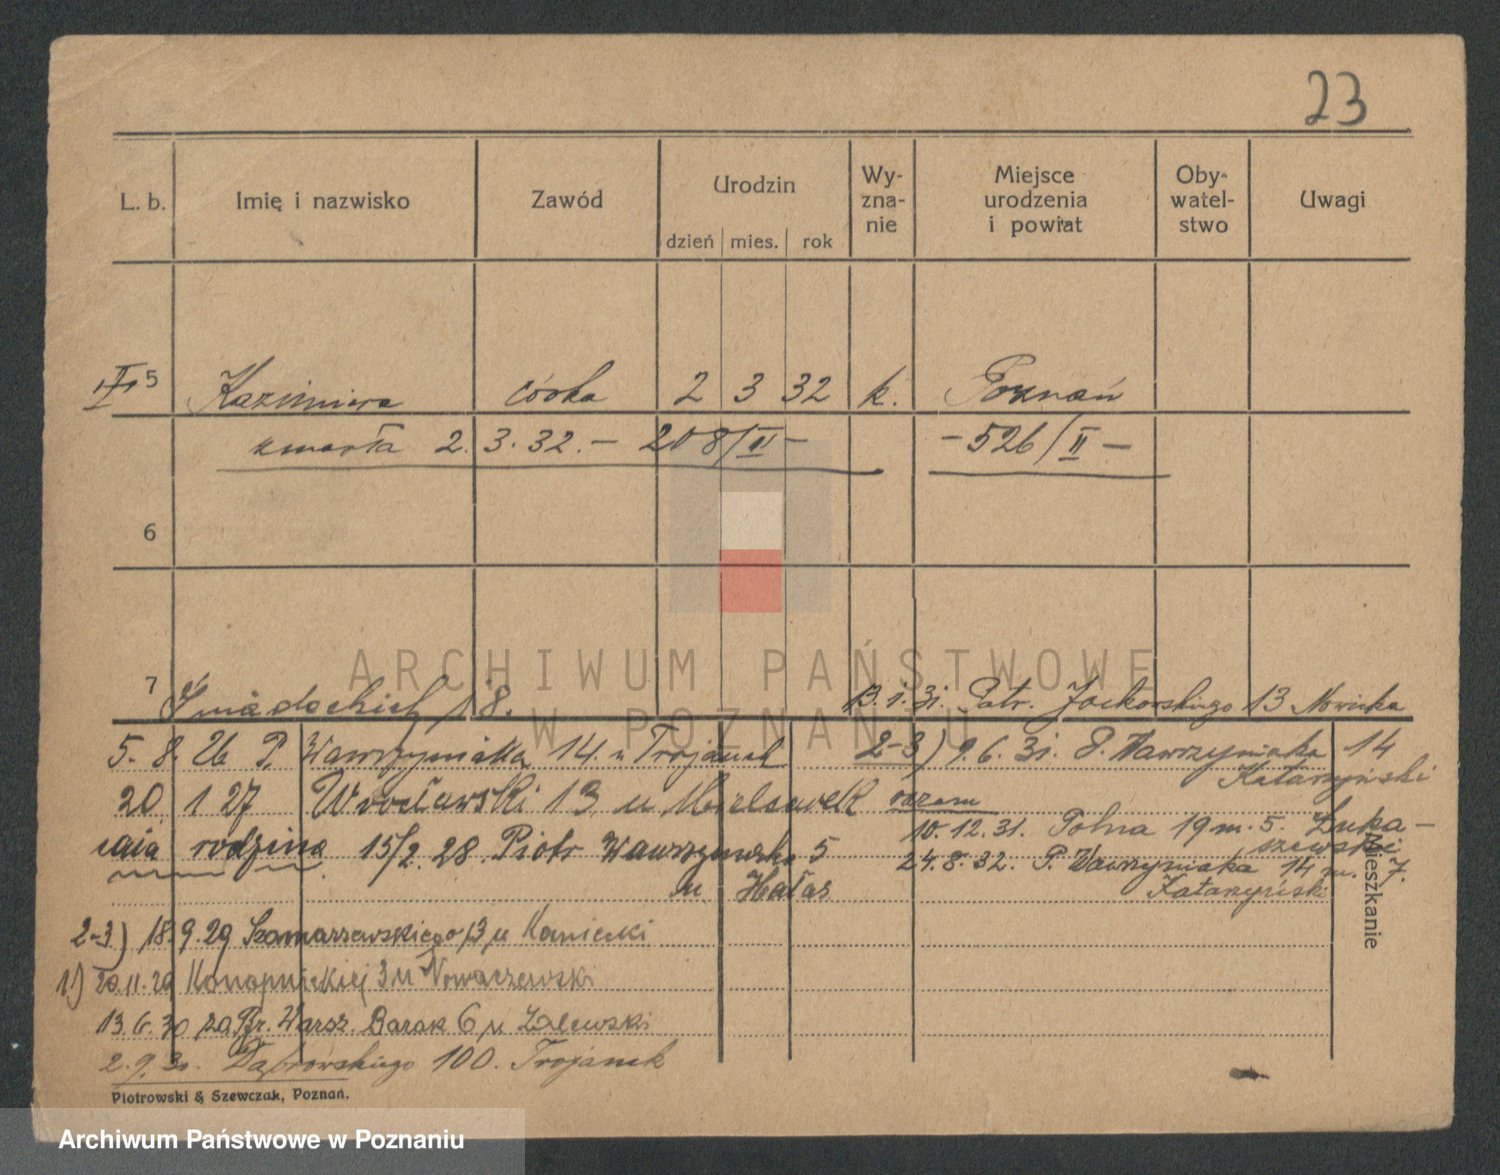 23
L. b. Imię i nazwisko Zawód Urodzin Wy- zna- nie Miejsce urodzenia i powiat Oby- watel- stwo Uwagi
dzień mies. rok
5 Kazimiera córka 2 3 32 k. Poznań
zmarła 2. 3. 32. – 208/II – – 526/II –
6
ARCHIWUM PAŃSTWOWE
W POZNANIU
7 Śniadeckich 18. 13. 1. 31. Patr. Jackowskiego 13 Nowicka
5. 8. 26 P. Wawrzyniaka 14. u Trojanek 2-3) 9. 6. 31. P. Wawrzyniaka 14
Katarzyński
20 1 27 Wrocławski 13 u razem
10. 12. 31. Polna 19 m. 5. Łuka-
szewski
cała rodzina 15/2. 28. Piotr Wawrzyniaka 5 24. 8. 32. P. Wawrzyniaka 14 m. 7.
u Hałas Katarzyński
Mieszkanie
2-3) 18. 9. 29 Szamarzewskiego 13 u Kaniecki
1) 20. 11. 29 Konopnickiej 3 u Nowaczewski
13. 6. 30 Warsz. Barak 6 u Zalewski
2. 9. 30. Dąbrowskiego 100. Trojanek
Piotrowski & Szewczak, Poznań.
Archiwum Państwowe w Poznaniu